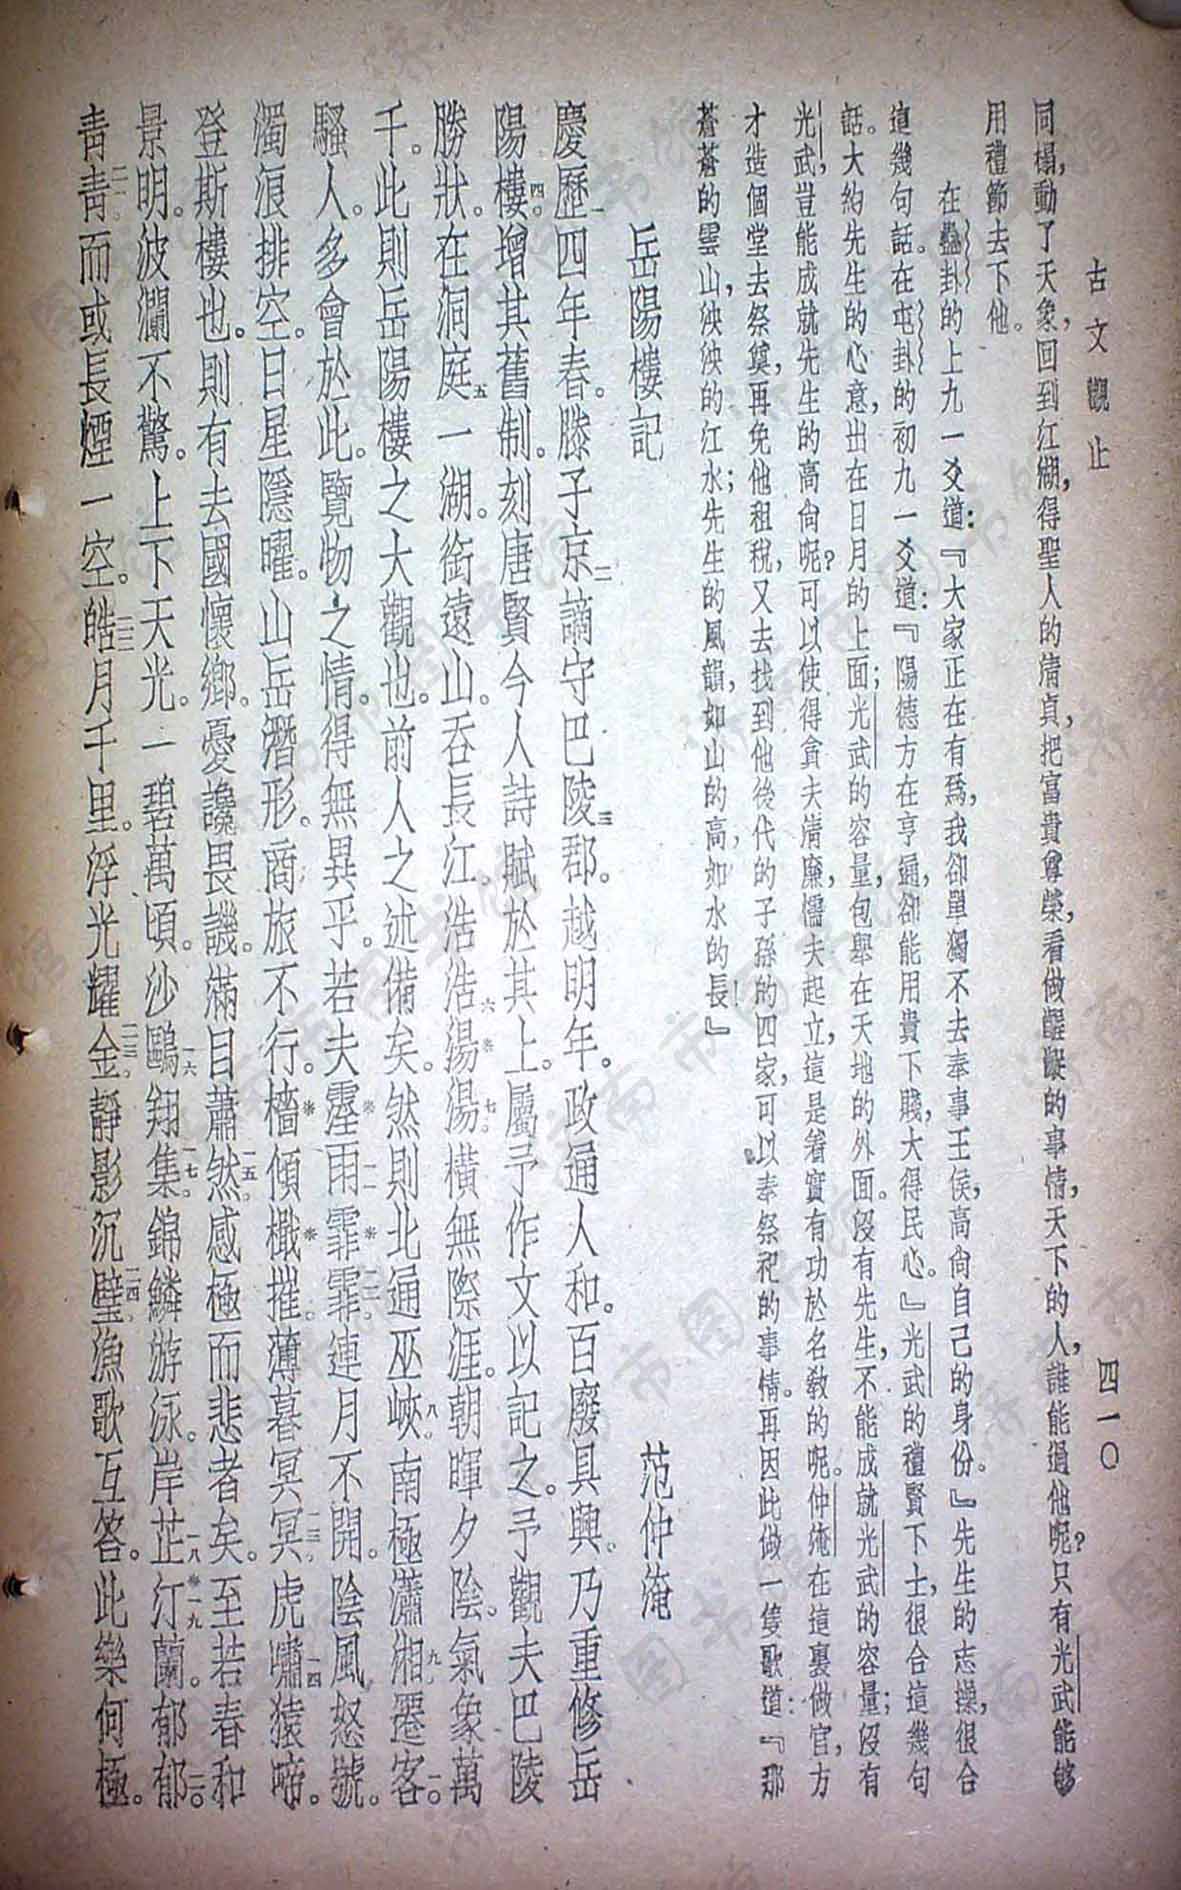 古文觀止
四一〇
同榻，動了天象，回到江湖，得聖人的清貞，把富貴尊榮，看做齷齪的事情，天下的人，誰能過他呢？只有光武能夠
用禮節去下他。
在蠱卦的上九一爻道：『大家正在有爲，我卻單獨不去奉事王侯，高尚自己的身份。』先生的志操，很合
這幾句話。在屯卦的初九一爻道：『陽德方在亨通，卻能用貴下賤，大得民心。』光武的禮賢下士，很合這幾句
話。大約先生的心意，出在日月的上面；光武的容量，包舉在天地的外面。沒有先生，不能成就光武的容量；沒有
光武，豈能成就先生的高尚呢？可以使得貪夫清廉，懦夫起立，這是着實有功於名教的呢。仲淹在這裏做官，方
才造個堂去祭奠，再免他租稅，又去找到他後代的子孫的四家，可以奉祭祀的事情。再因此做一隻歌道：『那
蒼蒼的雲山，泱泱的江水；先生的風韻，如山的高，如水的長！』
岳陽樓記
范仲淹
慶歷一四年春。滕子京二謫守巴陵三郡。越明年。政通人和。百廢具興。乃重修岳
陽樓四。增其舊制。刻唐賢今人詩賦於其上。屬予作文以記之。予觀夫巴陵
勝狀。在洞庭五一湖。銜遠山。吞長江。浩浩六湯※湯七。橫無際涯。朝暉夕陰。氣象萬
千。此則岳陽樓之大觀也。前人之述備矣。然則北通巫峽八。南極瀟湘九。遷客一〇
騷人。多會於此。覽物之情。得無異乎。若夫霪※雨一一霏※霏一二。連月不開。陰風怒號。
濁浪排空。日星隱曜。山岳潛形。商旅不行。檣※傾檝※摧。薄暮冥冥一三。虎嘯一四猿啼。
登斯樓也。則有去國懷鄉。憂讒畏譏。滿目蕭然一五。感極而悲者矣。至若春和
景明。波瀾不驚。上下天光。一碧萬頃。沙鷗一六翔集一七。錦鱗游泳。岸芷一八汀※蘭一九。郁郁二〇。
青青二一。而或長煙一空。皓二二月千里。浮光耀金二三。靜影沉璧二四。漁歌互答。此樂何極。